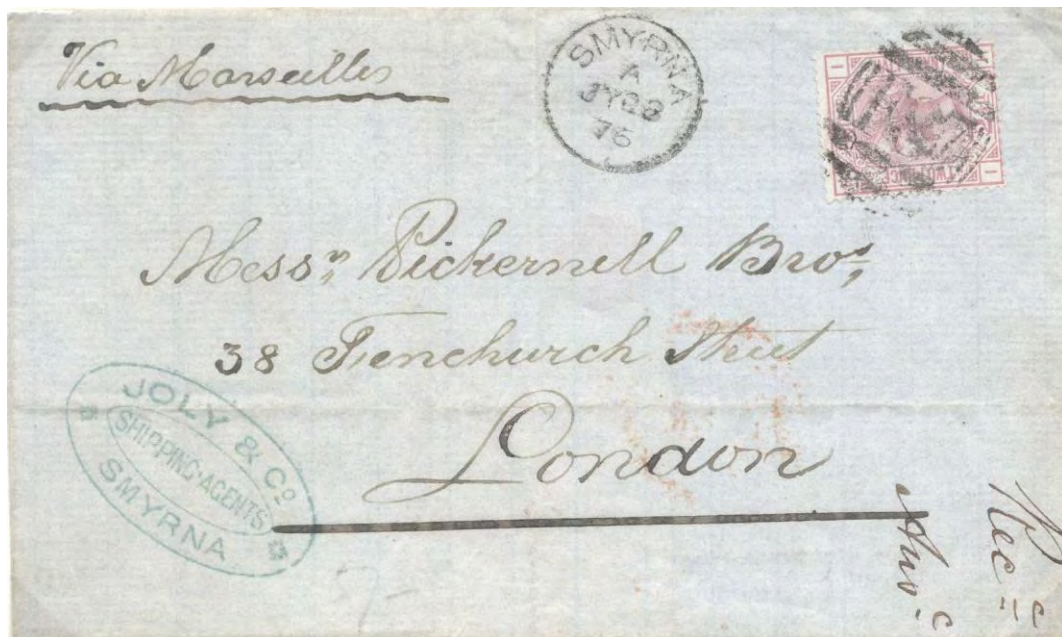 Via Marseilles
SMYRNA
A
JY 28
76
TWO PENCE
Messrs Pickernell Bros,
38 Fenchurch Street
London
JOLY & Co
SHIPPING-AGENTS
SMYRNA
Recc
Ansc